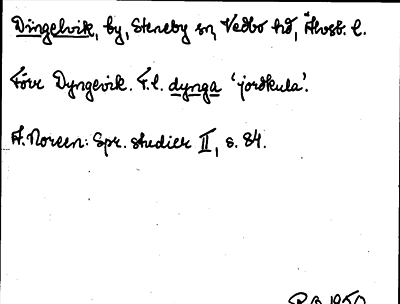 Dingelvik, by, Steneby sn, Vedbo hd, Älvsb. l.
Förr Dyngevik. F.l. dynga 'jordkula'.
A. Noreen: Spr. studier II, s. 84.
1950